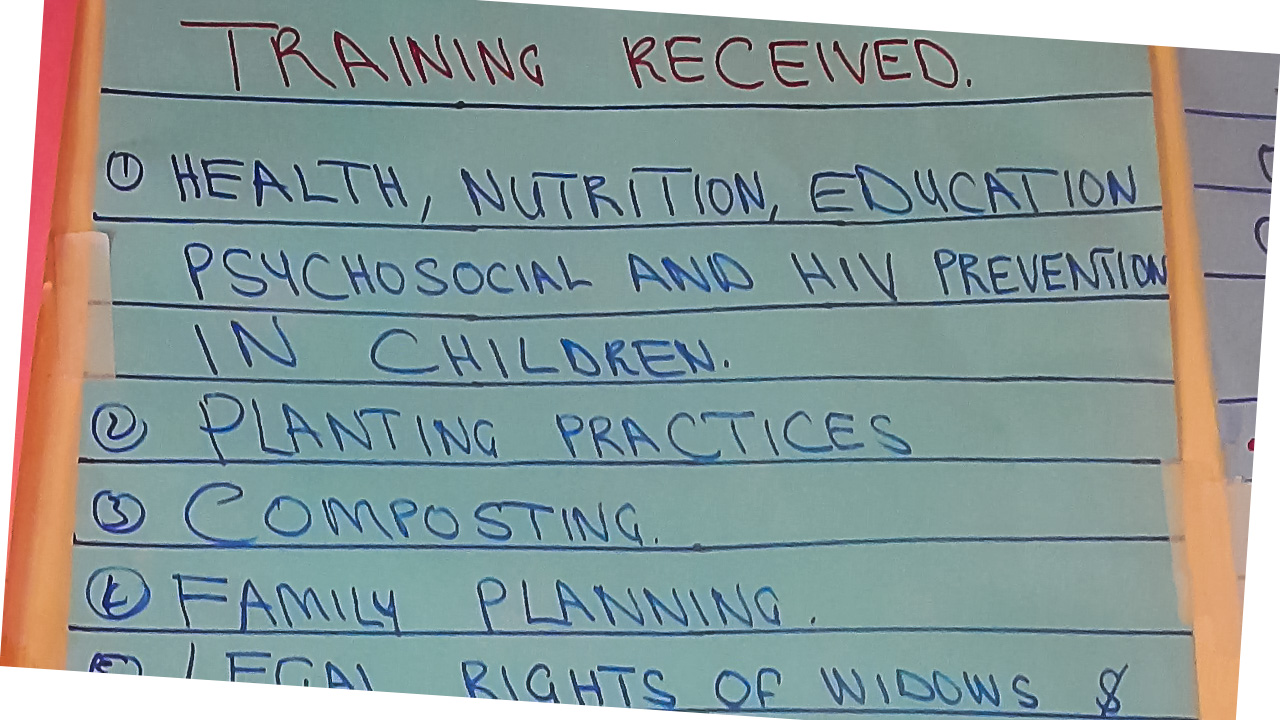 TRAINING RECEIVED.
① HEALTH, NUTRITION, EDUCATION
PSYCHOSOCIAL AND HIV PREVENTION
IN CHILDREN.
② PLANTING PRACTICES
③ COMPOSTING.
④ FAMILY PLANNING.
⑤ LEGAL RIGHTS OF WIDOWS &